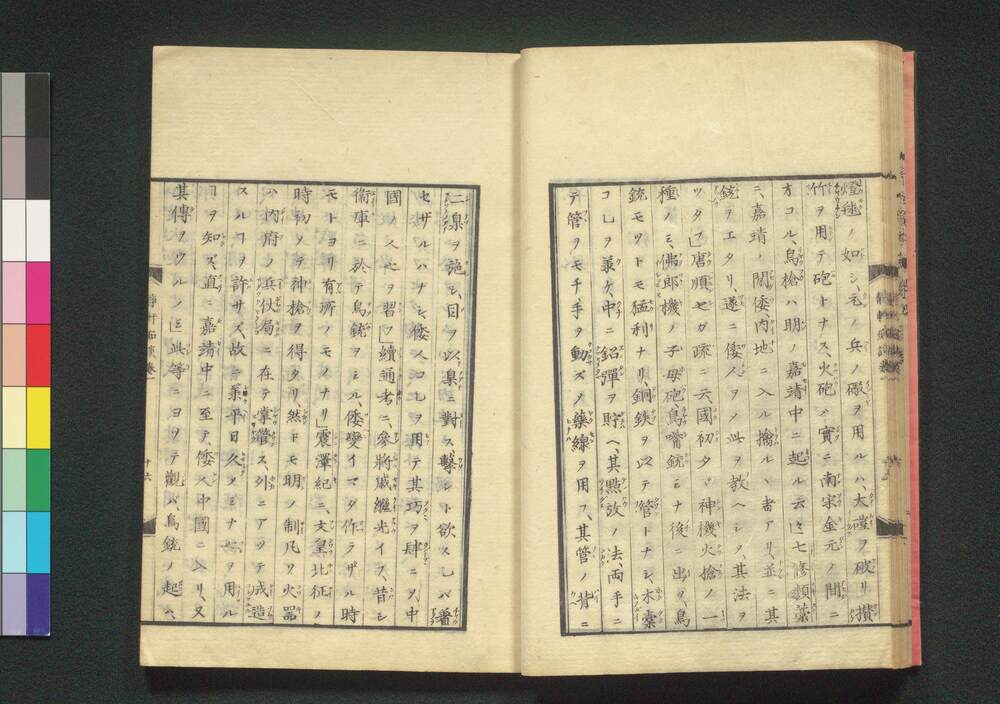 毬ノ如シ、元ノ兵ノ礮ヲ用ルハ、大礶ヲ破リ、攅
竹ヲ用テ砲トナス、火砲ハ實ニ南宋金元ノ間ニ
オコル、鳥槍ハ明ノ嘉靖中ニ起ル云々七修類藁
ニ、嘉靖ノ間倭内地ニ入ル擒ルヽ者アリ、並ニ其
銃ヲエタリ、遂ニ倭人ヲメ此ヲ教ヘシメ、其法ヲ
ツタフ」唐順セガ疏ニ云國初タヾ神機火槍ノ一
種ノミ、佛郎機ノ子母砲鳥嘴銃ミナ後ニ出ヅ鳥
銃モツトモ猛利ナリ、銅鐵ヲ以テ管トナシ、木槖
コレヲ義ケ、中ニ鉛彈ヲ貯ヘ、其點放ノ法、両手ニ
テ管ヲモチ手ヲ動ズメ藥線ヲ用フ、其管ノ背ニ
二臬ヲ施シ、目ヲ以臬ニ對ス撃ント欲スレバ著
セザルハナシ、倭人コレヲ用テ其巧ヲ肆ニス、中
國ノ人之ヲ習フ」續通考ニ、參將戚繼光イフ、昔シ
衞庫ニ於テ鳥銃ヲミル、倭變イマダ作ラザル時
モトヨリ有所ノモノナリ」震澤紀ニ、文皇北征ノ
時初メテ神槍ヲ得タリ然トモ明ノ制凡ソ火器
ハ内府ノ兵仗局ニ在テ掌管ス、外ニアツテ成造
スルコヲ許サズ、故ニ承平日久クミナ
ヲ用ル
コヲ知ズ、直ニ嘉靖中ニ至テ、倭人中國ニ入リ、又
其傳ヲウルノミ」此等ニヨツテ觀バ鳥銃ノ起ハ、
十六